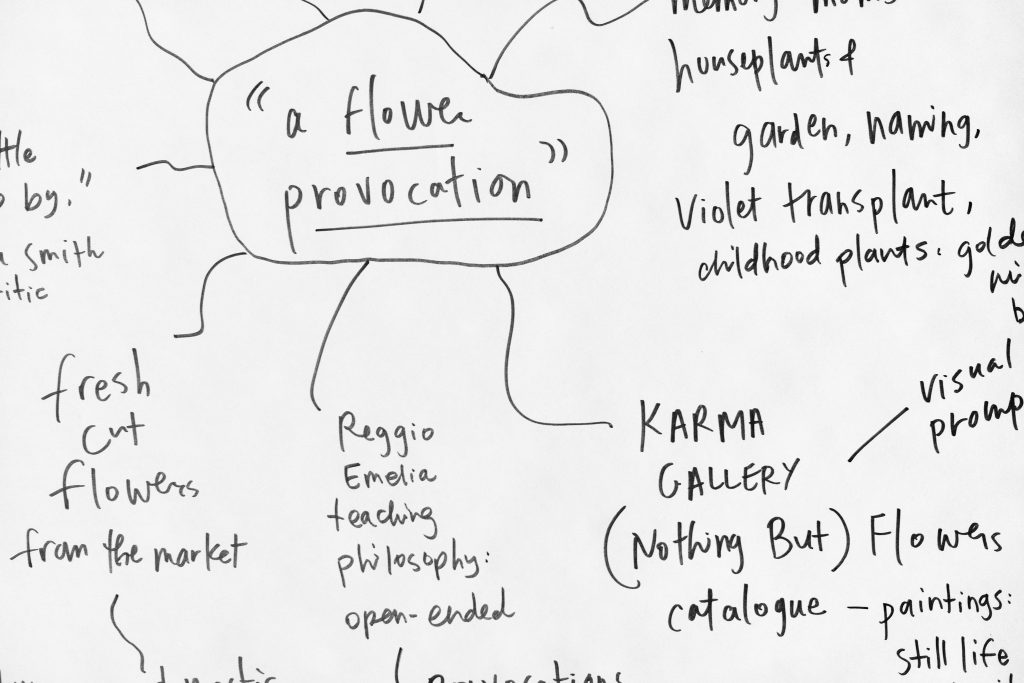 houseplants &
garden, naming,
violet transplant,
childhood plants:
"a flower
provocation"
by."
smith
fresh
cut
flowers
from the market
Reggio
Emelia
teaching
philosophy:
open-ended
provocations
KARMA
GALLERY
(Nothing But) Flowers
catalogue – paintings:
still life
visual